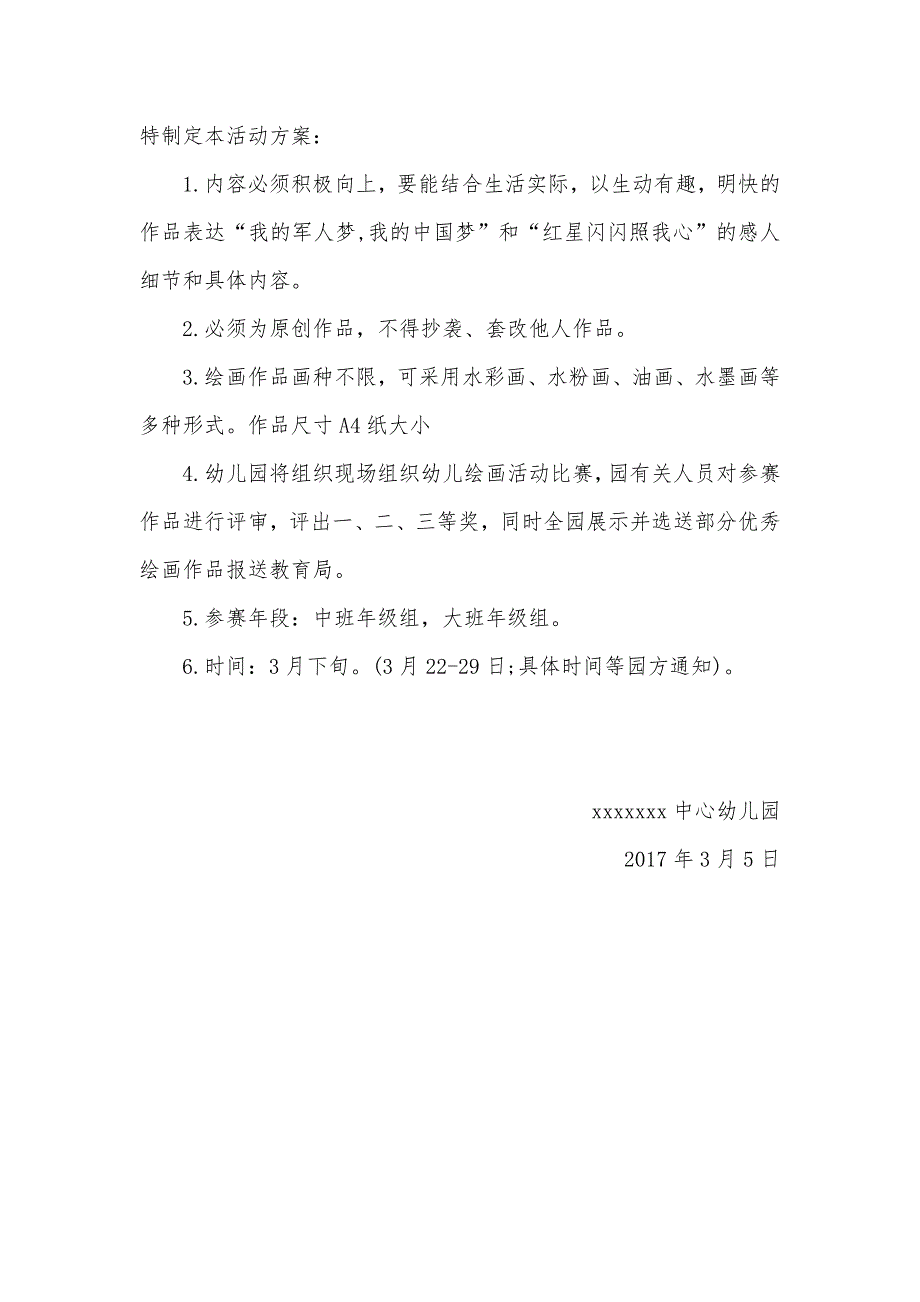 特制定本活动方案：
1.内容必须积极向上，要能结合生活实际，以生动有趣，明快的
作品表达“我的军人梦,我的中国梦”和“红星闪闪照我心”的感人
细节和具体内容。
2.必须为原创作品，不得抄袭、套改他人作品。
3.绘画作品画种不限，可采用水彩画、水粉画、油画、水墨画等
多种形式。作品尺寸 A4 纸大小
4.幼儿园将组织现场组织幼儿绘画活动比赛，园有关人员对参赛
作品进行评审，评出一、二、三等奖，同时全园展示并选送部分优秀
绘画作品报送教育局。
5.参赛年段：中班年级组，大班年级组。
6.时间：3 月下旬。(3 月 22-29 日;具体时间等园方通知)。
xxxxxxx 中心幼儿园
2017 年 3 月 5 日